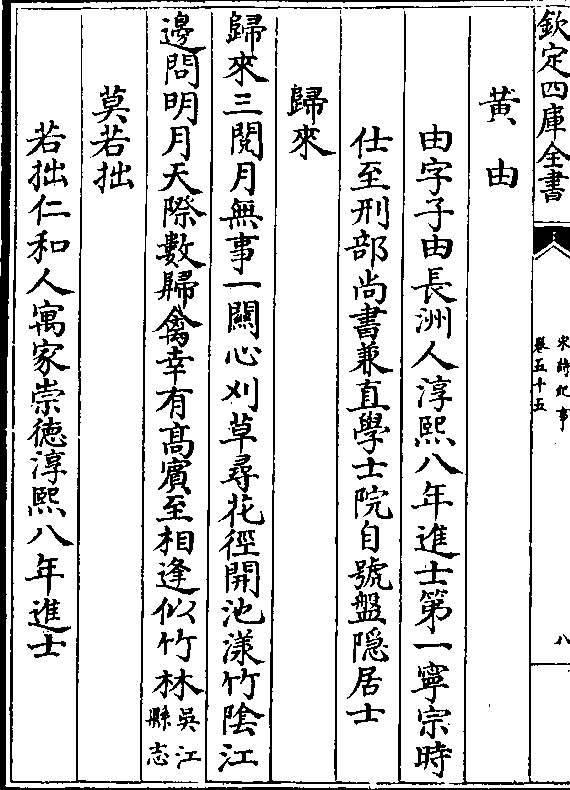 欽定四庫全書
宋詩紀事
卷五十五
八
黃由
由字子由長洲人淳熙八年進士第一寧宗時
仕至刑部尚書兼直學士院自號盤隱居士
歸來
歸來三閱月無事一關心刈草尋花徑開池漾竹陰江
邊問明月天際數歸禽幸有髙賓至相逢似竹林吳江縣志
莫若拙
若拙仁和人寓家崇徳淳熙八年進士